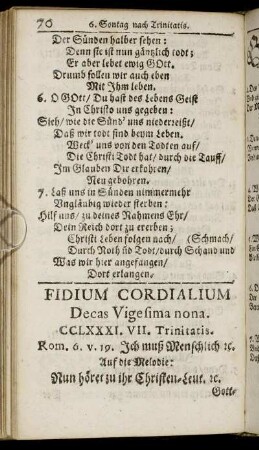 70 6. Sontag nach Trinitatis.
Der Sünden halber sehen:
Denn sie ist nun gäntzlich todt;
Er aber lebet ewig GOtt.
Drumb sollen wir auch eben
Mit Ihm leben.
6. O GOtt/ Du hast des Lebens Geist
In Christo uns gegeben:
Sieh/ wie die Sünd' uns niederreißt/
Daß wir todt sind beym Leben.
Weck' uns von den Todten auf/
Die Christi Todt hat/ durch die Tauff/
Im Glauben Dir erkohren/
Neu gebohren.
7. Laß uns in Sünden nimmermehr
Ungläubig wieder sterben:
Hilf uns/ zu deines Nahmens Ehr/
Dein Reich dort zu ererben;
Christi Leben folgen nach/ (Schmach/
Durch Noth und Todt/ durch Schand und
Was wir hier angefangen/
Dort erlangen.
FIDIUM CORDIALIUM
Decas Vigesima nona.
CCLXXXI. VII. Trinitatis.
Rom. 6. v. 19. Ich muß Menschlich ꝛc.
Auf die Melodie:
Nun höret zu ihr Christen-Leut. ꝛc.
Gott-